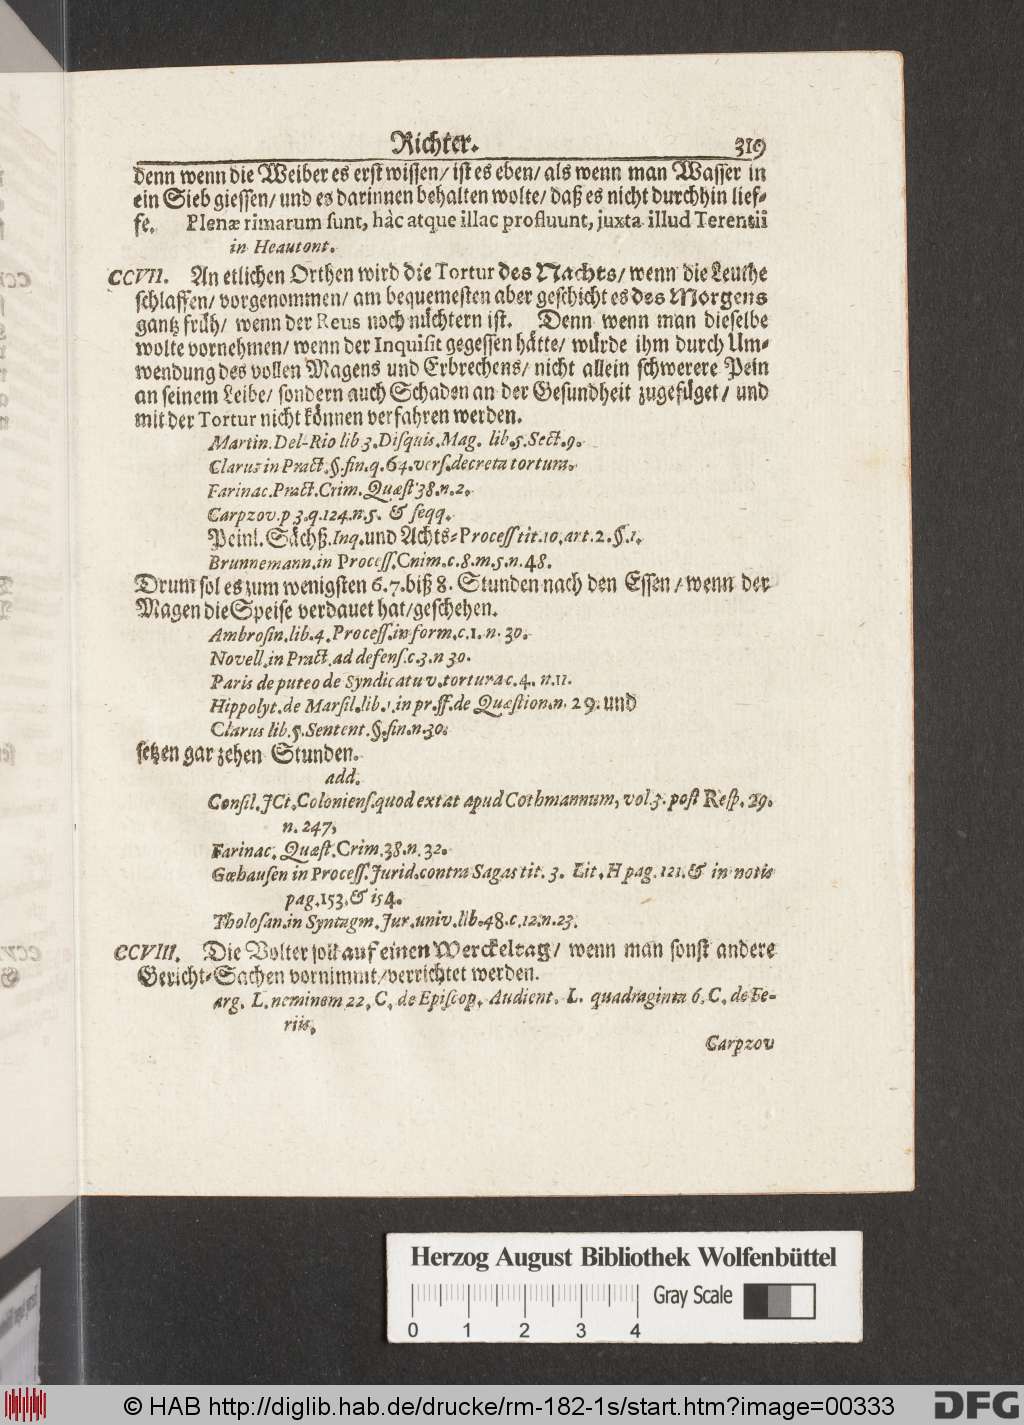 Richter. 319
denn wenn die Weiber es erst wissen/ ist es eben/ als wenn man Wasser in
ein Sieb giessen/ und es darinnen behalten wolte/ daß es nicht durchhin lief-
fe. Plenæ rimarum sunt, hàc atque illac profluunt, juxta illud Terentii
in Heautont.
CCVII. An etlichen Orthen wird die Tortur des Nachts/ wenn die Leuthe
schlaffen/ vorgenommen/ am bequemesten aber geschicht es des Morgens
gantz früh/ wenn der Reus noch nüchtern ist. Denn wenn man dieselbe
wolte vornehmen/ wenn der Inquisit gegessen hätte/ würde ihm durch Um-
wendung des vollen Magens und Erbrechens/ nicht allein schwerere Pein
an seinem Leibe/ sondern auch Schaden an der Gesundheit zugefüget/ und
mit der Tortur nicht können verfahren werden.
Martin. Del-Rio lib 3. Disquis. Mag. lib. 5. Sect. 9.
Clarus in Pract. §. fin. q. 64. vers. decreta tortura.
Farinac. Pract. Crim. Quæst 38. n. 2.
Carpzov. p 3. q. 124. n. 5. & seqq.
Peinl. Sächß. Inq. und Achts-Process tit. 10. art. 2. §. 1.
Brunnemann. in Process. Cnim. c. 8. m. 5. n. 48.
Drum sol es zum wenigsten 6. 7. biß 8. Stunden nach den Essen/ wenn der
Magen die Speise verdauet hat/ geschehen.
Ambrosin. lib. 4. Process. inform. c. 1. n. 30.
Novell. in Pract. ad defens. c. 3. n 30.
Paris de puteo de Syndicatu v. tortura c. 4. n. 11.
Hippolyt. de Marsil. lib. 1. in pr. ff. de Quæstion. n. 29. und
Clarus lib. 5. Sentent. §. fin. n. 30.
setzen gar zehen Stunden.
add.
Consil. JCt. Coloniens. quod extat apud Cothmannum, vol 3. post Resp. 29.
n. 247,
Farinac. Quæst. Crim. 38. n. 32.
Gœhausen in Process. Jurid. contra Sagas tit. 3. Lit. H pag. 121. & in notis
pag. 153. & 154.
Tholosan. in Syntagm. Jur. univ. lib. 48. c. 12. n. 23.
CCVIII. Die Volter soll auf einen Werckeltag/ wenn man sonst andere
Gericht-Sachen vornimmt/ verrichtet werden.
arg. L. neminem 22. C. de Episcop. Audient. L. quadraginta 6. C. de Fe-
riis.
Carpzov
Herzog August Bibliothek Wolfenbüttel
Gray Scale
0 1 2 3 4
© HAB http://diglib.hab.de/drucke/rm-182-1s/start.htm?image=00333
DFG